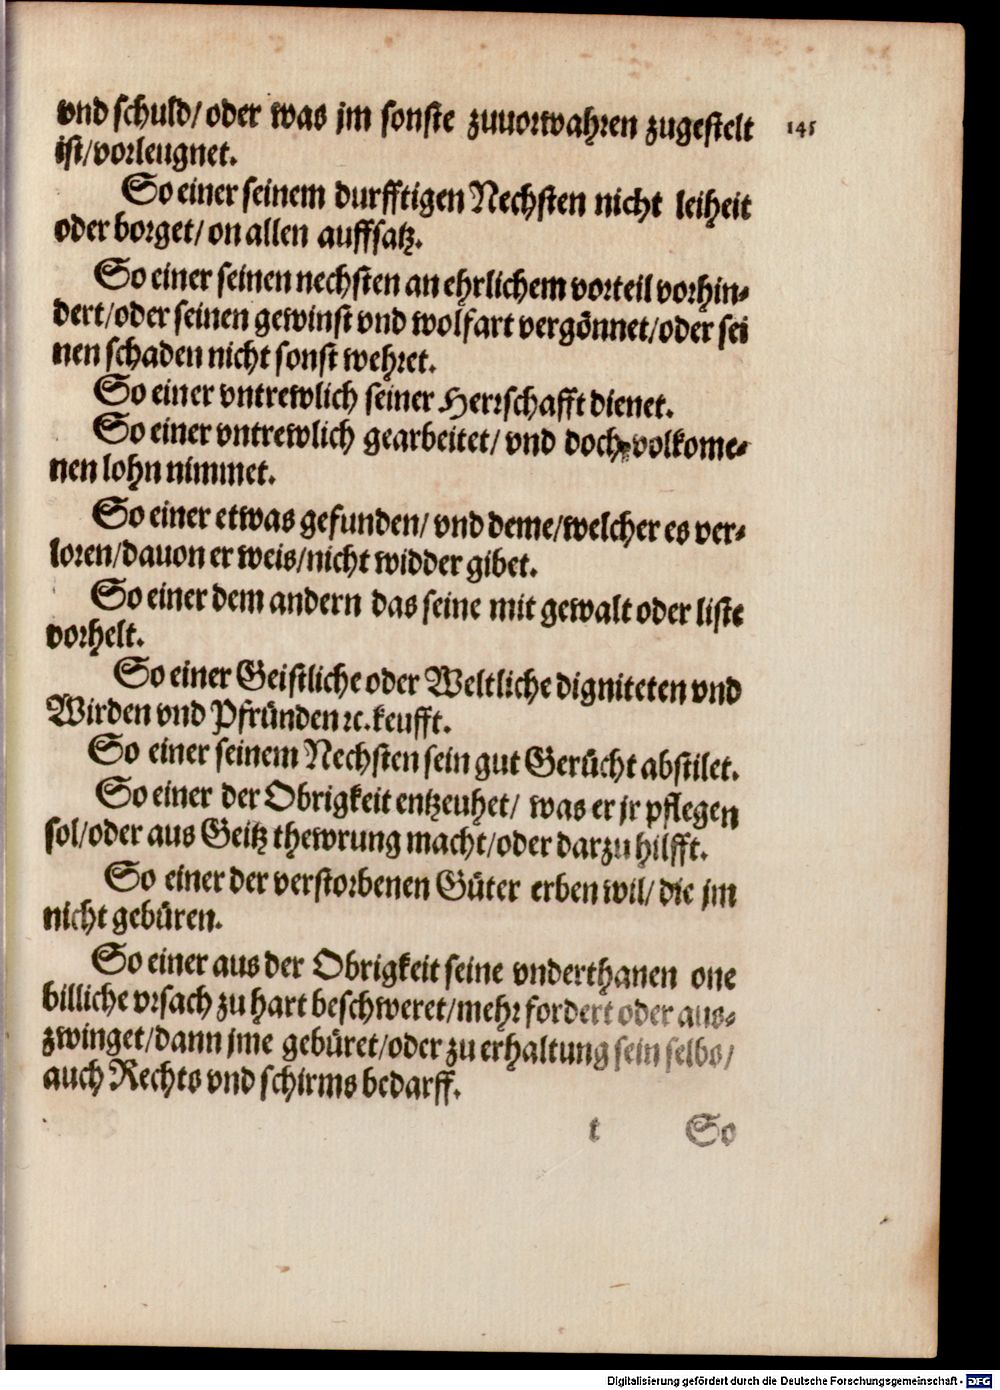 vnd schuld/ oder was jm sonste zuuorwahren zugestelt
145
ist/vorleugnet.
So einer seinem durfftigen Nechsten nicht leiheit
oder borget/ on allen auffsatz.
So einer seinen nechsten an ehrlichem vorteil vorhin-
dert/oder seinen gewinst vnd wolfart vergönnet/oder sei
nen schaden nicht sonst wehret.
So einer vntrewlich seiner Herrschafft dienet.
So einer vntrewlich gearbeitet/ vnd doch volkome-
nen lohn nimmet.
So einer etwas gefunden/ vnd deme/welcher es ver-
loren/dauon er weis/nicht widder gibet.
So einer dem andern das seine mit gewalt oder liste
vorhelt.
So einer Geistliche oder Weltliche digniteten vnd
Wirden vnd Pfründen ꝛc. keufft.
So einer seinem Nechsten sein gut Gerücht abstilet.
So einer der Obrigkeit entzeuhet/ was er jr pflegen
sol/oder aus Geitz thewrung macht/oder darzu hilfft.
So einer der verstorbenen Güter erben wil/ die jm
nicht gebüren.
So einer aus der Obrigkeit seine vnderthanen one
billiche vrsach zu hart beschweret/mehr fordert oder aus-
zwinget/dann jme gebüret/oder zu erhaltung sein selbs/
auch Rechts vnd schirms bedarff.
t So
Digitalisierung gefördert durch die Deutsche Forschungsgemeinschaft - DFG